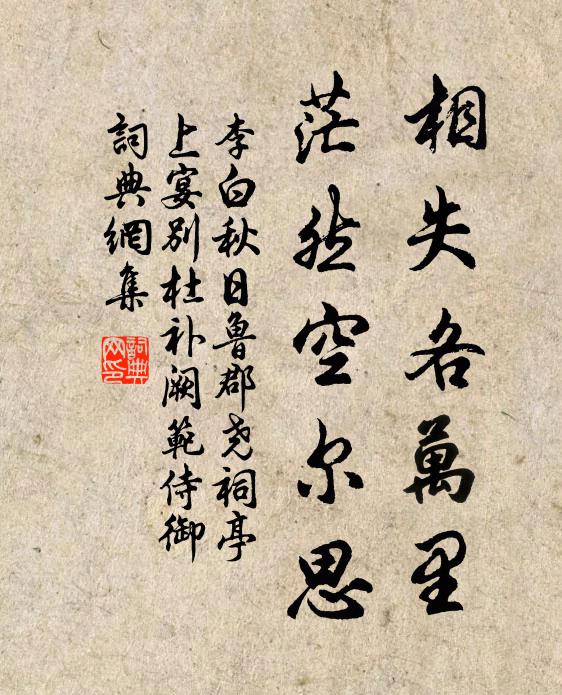 相失各萬里
茫然空尔思
李白秋日魯郡尧祠亭
上宴别杜补阙範侍御
詞典網集
詞典
网印